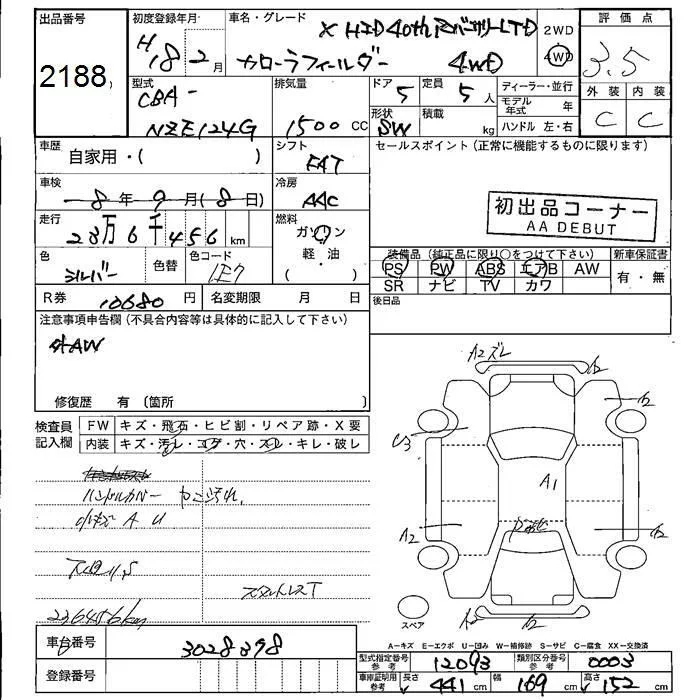 出品番号
2188
初度登録年月
H18 2月
車名・グレード
X HID 40th アニバーサリーLTD
カローラフィールダー 4WD
2WD
4WD
評価点
3.5
外装 内装
C C
型式
CBA-
NZE124G
排気量
1500 CC
ドア
5
定員
5人
形状
SW
積載
kg
ディーラー・並行
モデル年式 年
ハンドル 左・右
車歴
自家用・( )
シフト
FAT
セールスポイント(正常に機能するものに限ります)
初出品コーナー
AA DEBUT
車検
8年9月(8日)
冷房
AAC
走行
23万6千456km
燃料
ガソリン
軽・油
( )
色
シルバー
色替
色コード
1E7
装備品(純正品に限り○をつけて下さい)
PS PW ABS エアB AW
SR ナビ TV カワ
新車保証書
有・無
R券 10680円
名変期限 月 日
後日品
注意事項申告欄(不具合内容等は具体的に記入して下さい)
社外AW
修復歴 有(箇所 )
検査員記入欄
FW キズ・飛石・ヒビ割・リペア跡・X要
内装 キズ・汚レ・コゲ・穴・スレ・キレ・破レ
ハンドルカバー ヤニ汚れ
小キズ A U
236456km
スタットレスT
A2ズレ
A1
A2
スペア
A-キズ E-エクボ U-凹み W-補修跡 S-サビ C-腐食 XX-交換済
車台番号
3028398
登録番号
型式指定番号 参考
12093
類別区分番号 参考
0003
車庫証明用 参考
長さ 441 cm
幅 169 cm
高さ 152 cm